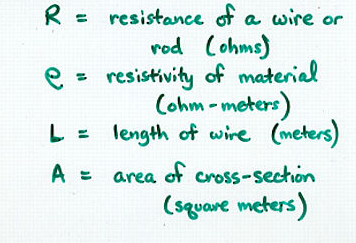 R = resistance of a wire or
rod (ohms)
ρ = resistivity of material
(ohm-meters)
L = length of wire (meters)
A = area of cross-section
(square meters)